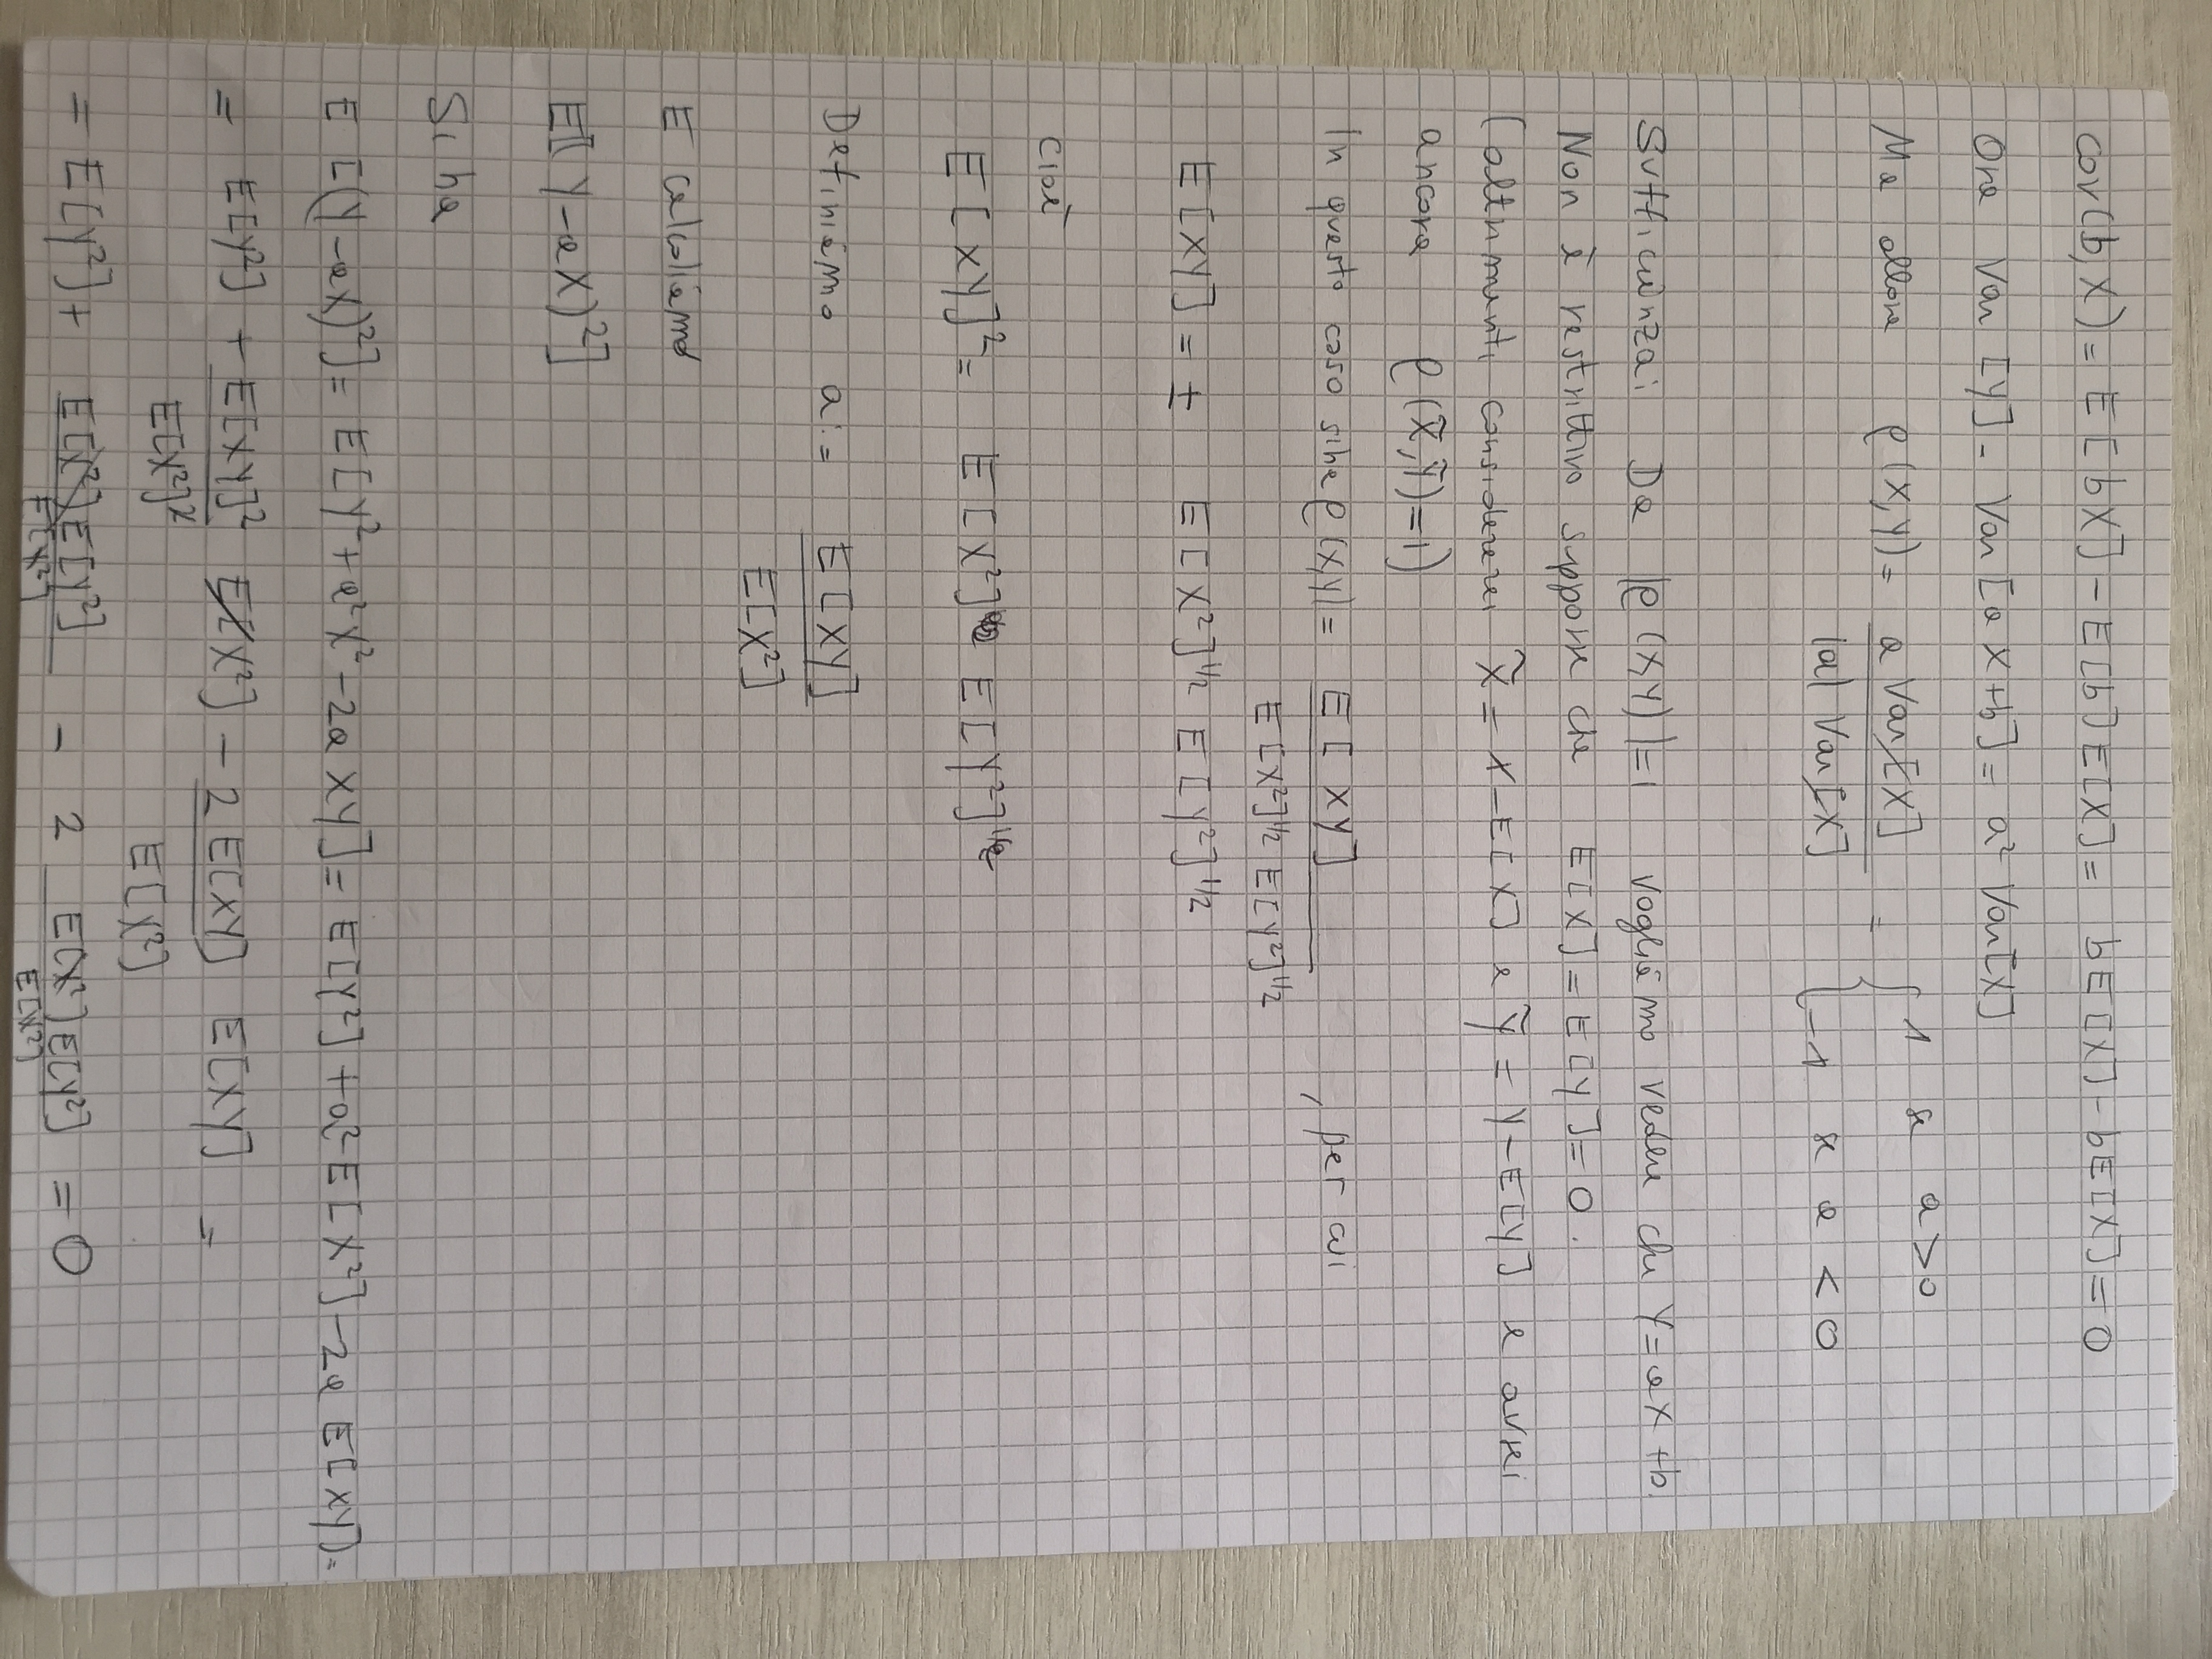 cov(b,X) = E[bX] - E[b]E[X] = bE[X] - bE[X] = 0
Ora Var[Y] = Var[aX+b] = a² Var[X]
Ma allora ρ(X,Y) = a Var[X] / |a| Var[X] = { 1 se a > 0
-1 se a < 0
Sufficienza: Da |ρ(X,Y)|=1 vogliamo vedere che Y=aX+b.
Non è restrittivo supporre che E[X]=E[Y]=0.
(altrimenti considererei X̃ = X-E[X] e Ỹ = Y-E[Y] e avrei
ancora ρ(X̃,Ỹ)=1)
In questo caso si ha ρ(X,Y) = E[XY] / E[X²]^1/2 E[Y²]^1/2 , per cui
E[XY] = ± E[X²]^1/2 E[Y²]^1/2
cioè
E[XY]² = E[X²] E[Y²]
Definiamo a := E[XY] / E[X²]
E calcoliamo
E[(Y-aX)²]
Si ha
E[(Y-aX)²] = E[Y²+a²X²-2aXY] = E[Y²] + a²E[X²] - 2a E[XY] =
= E[Y²] + E[XY]² / E[X²]² E[X²] - 2 E[XY] / E[X²] E[XY] =
= E[Y²] + E[X²]E[Y²] / E[X²] - 2 E[X²]E[Y²] / E[X²] = 0